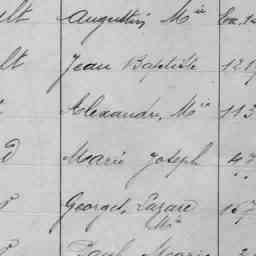 lt Augustin, Mie
lt Jean Baptiste 121
Alexandre, Mie 113
d Marie Joseph 47
Georget, Lazare 157
Mie
Paul Marie